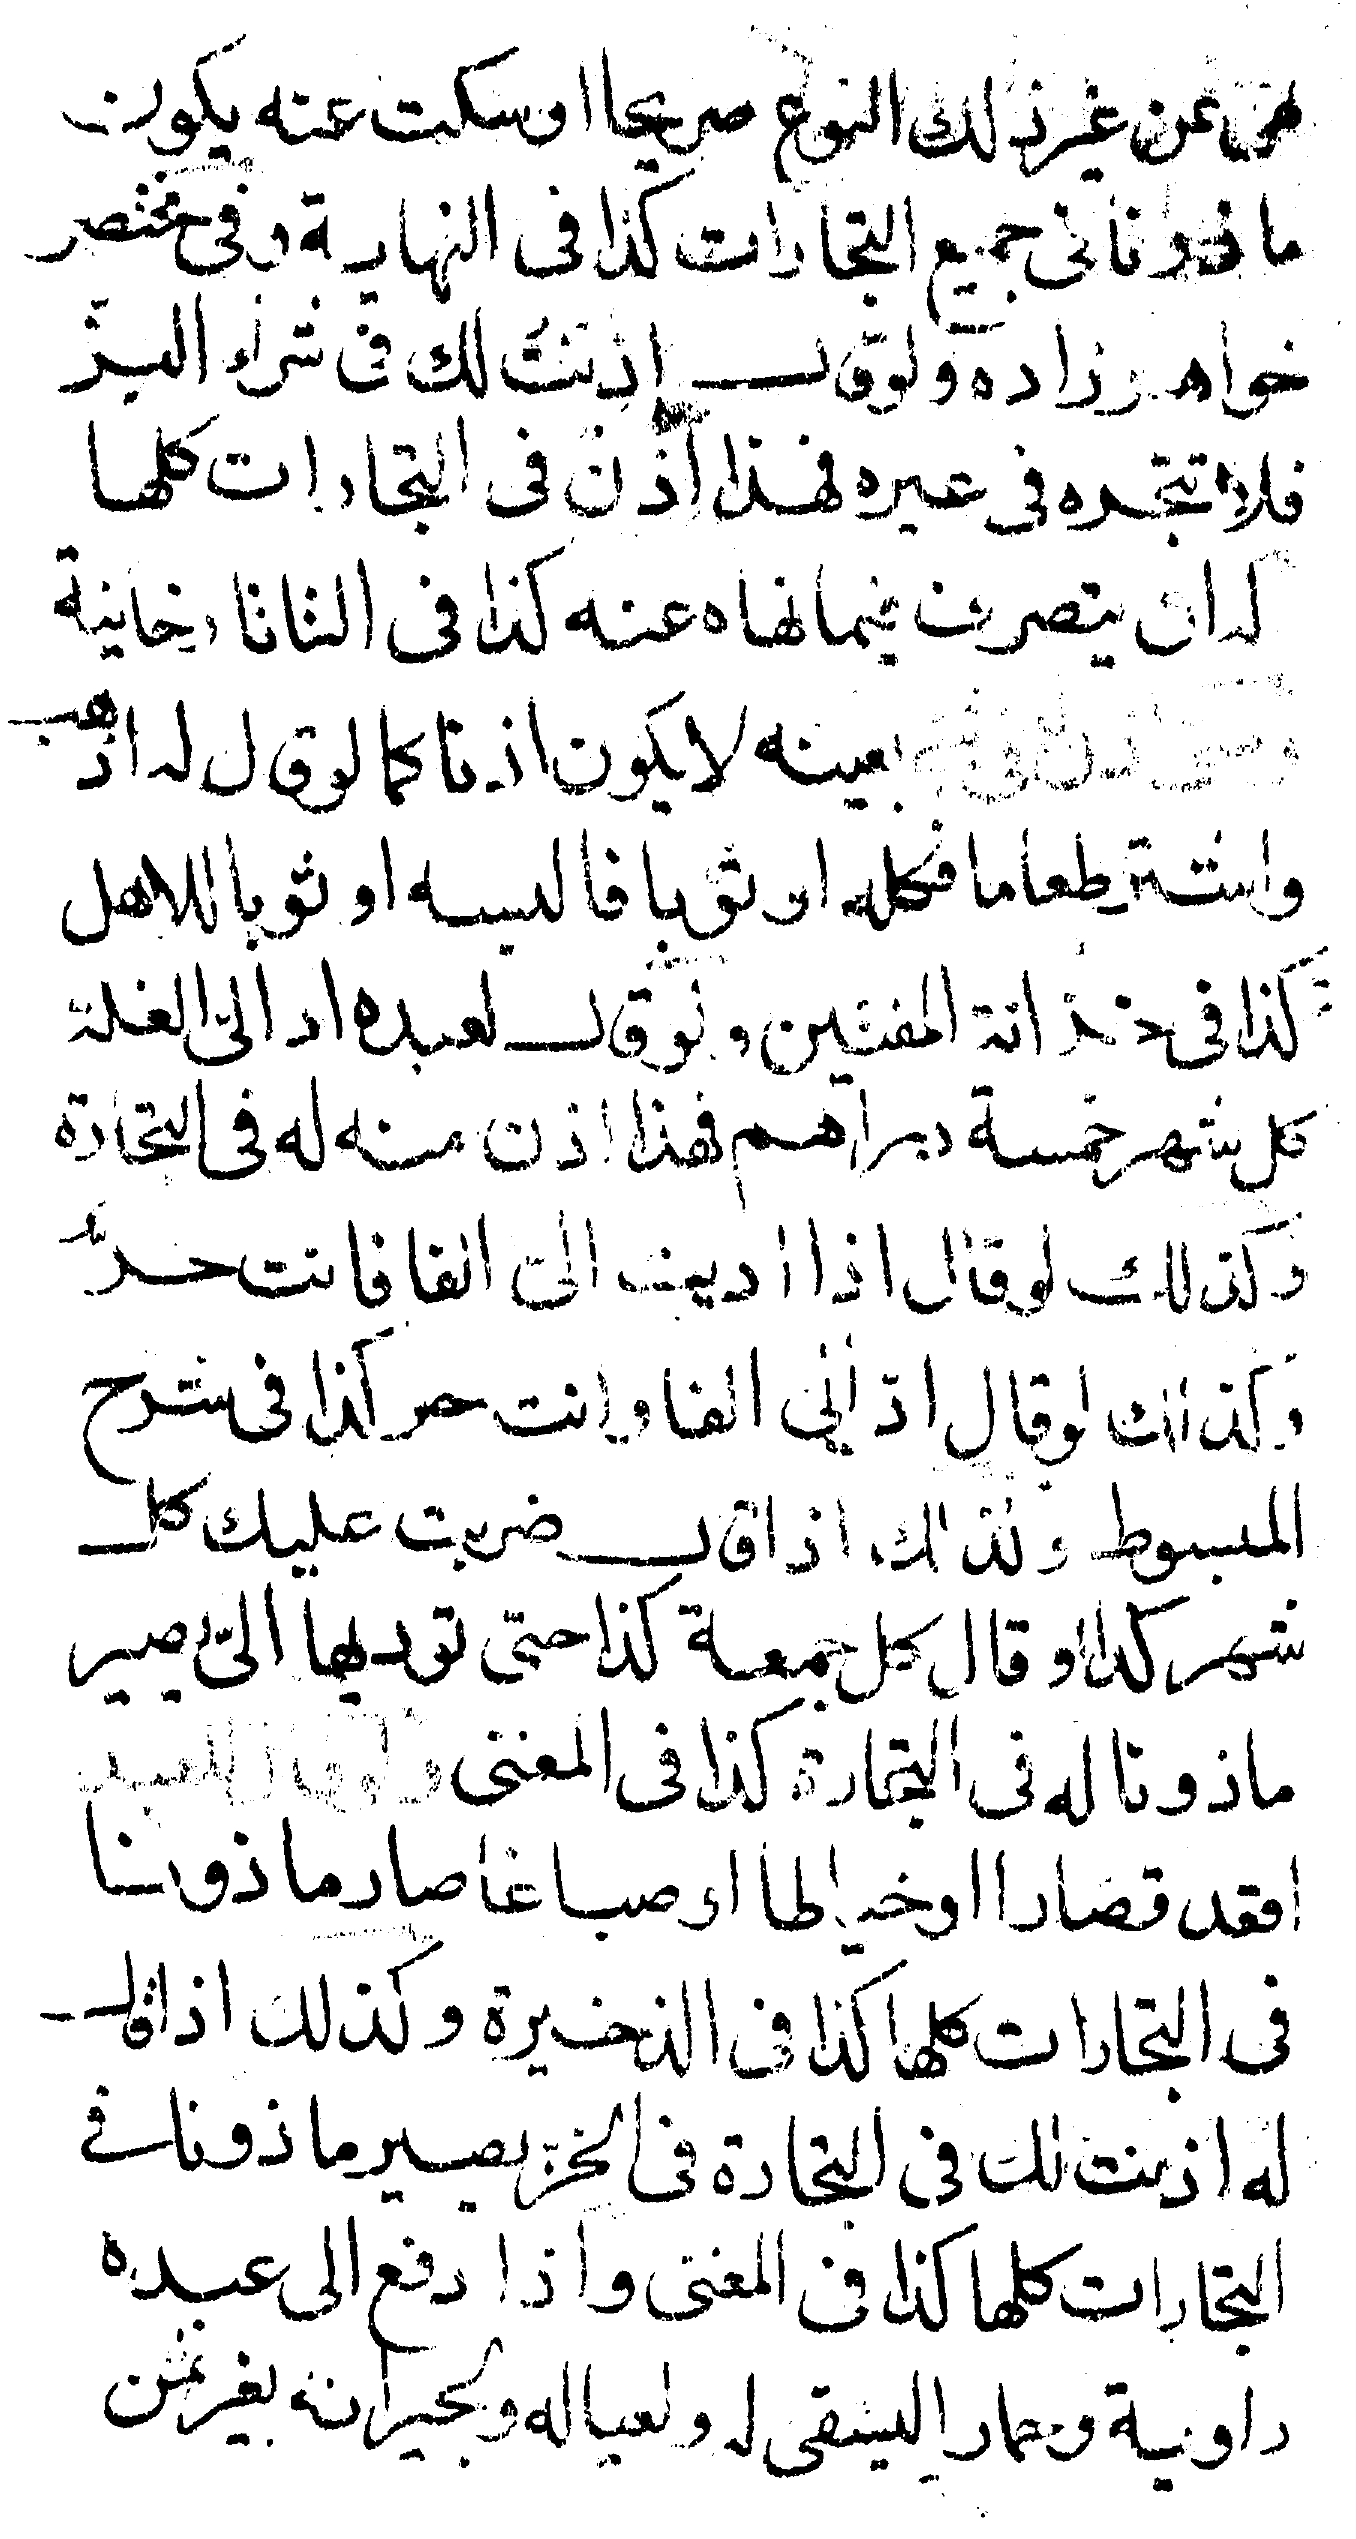 عن غير ذلك النوع صريحا او سكت عنه يكون
ماذونا فى جميع التجارات كذا فى النهاية وفى مختصر
خواهر زاده ولو قال اذنت لك فى شراء البز
فلا تتجره فى غيره فهذا اذن فى التجارات كلها
له ان يتصرف فيما نهاه عنه كذا فى التاتارخانية
بعينه لا يكون اذنا كما لو قال له اذهب
واشتر طعاما فكله او ثوبا فالبسه او ثوبا للاهل
كذا فى خزانة المفتين ولو قال لعبده اد الى الغلة
كل شهر خمسة دراهم فهذا اذن منه له فى التجارة
وكذلك لو قال اذا اديت الى الفا فانت حر
وكذلك لو قال اد الى الفا وانت حر كذا فى شرح
المبسوط وكذلك اذا قال ضربت عليك كل
شهر كذا او قال كل جمعة كذا حتى توديها الى يصير
ماذونا له فى التجارة كذا فى المغنى ولو قال للعبد
اقعد قصارا او خياطا او صباغا صار ماذونا
فى التجارات كلها كذا فى الذخيرة وكذلك اذا قال
له اذنت لك فى التجارة فى الخز يصير ماذونا فى
التجارات كلها كذا فى المغنى واذا دفع الى عبده
راوية وحمارا ليستقى له ولعياله ولجيرانه بغير ثمن